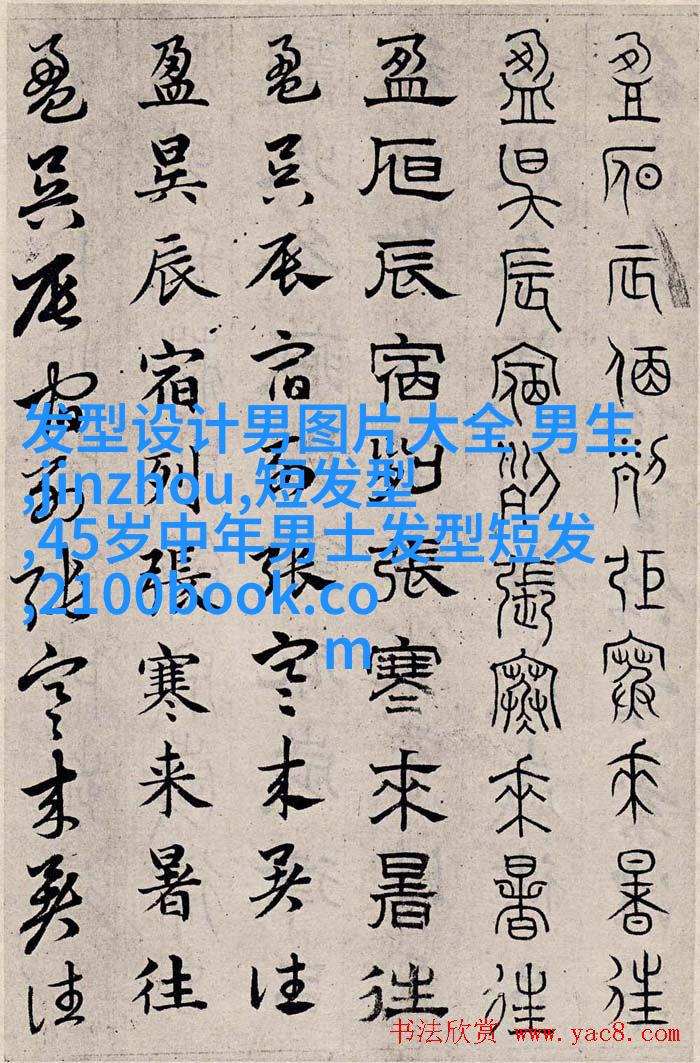 盈昃辰宿列張寒來暑往
盈昃辰宿列張寒來暑往
盈昃辰宿列張寒來暑往
盈昃辰宿列张寒来暑往
盈昃辰宿列張寒来暑往
盈昃辰宿列张寒来暑往
发型设计男图片大全 男生
,jinzhou,短发型
,45岁中年男士发型短发
,2100book.co
m
书法欣赏 www.yac8.com